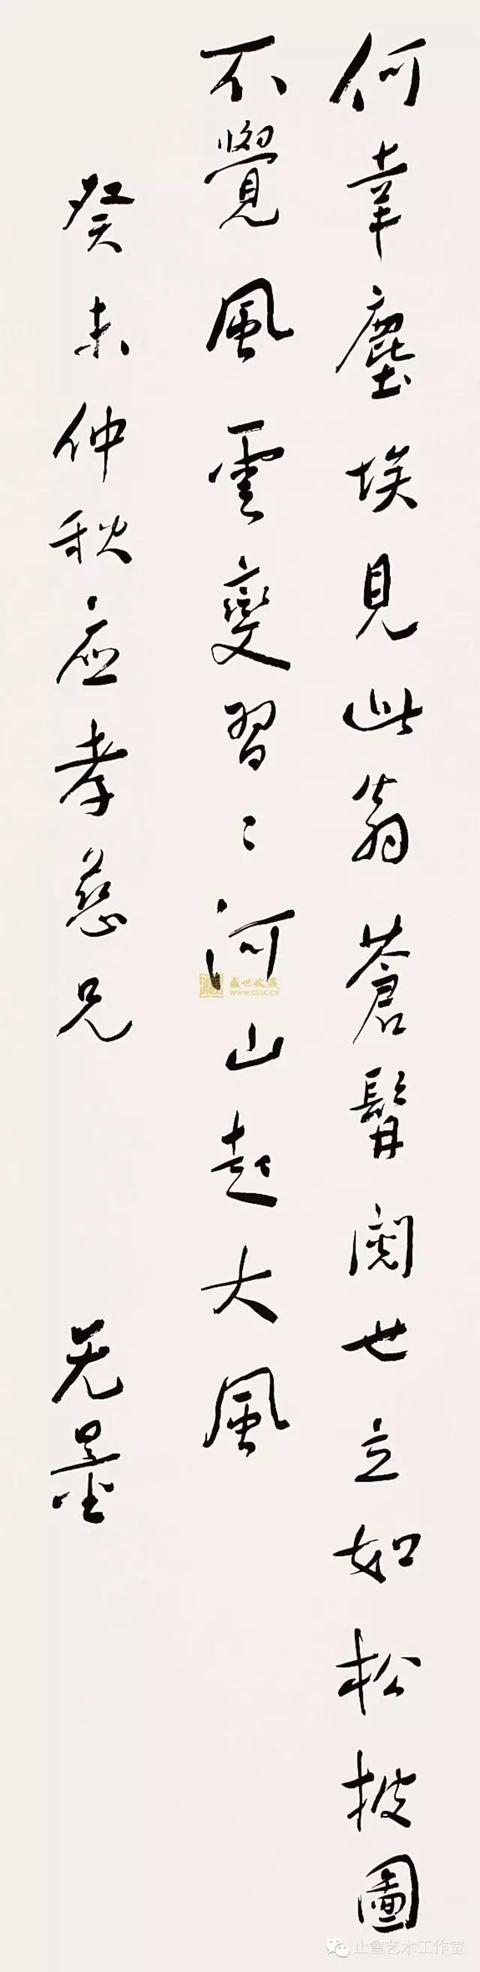 何幸塵埃見此翁蒼髯閱世立如松披圖
不覺風雲變習〻河山起大風
癸未仲秋應孝慈兄
无墨
盛世收藏
www.sssc.cn
止盦艺术工作室